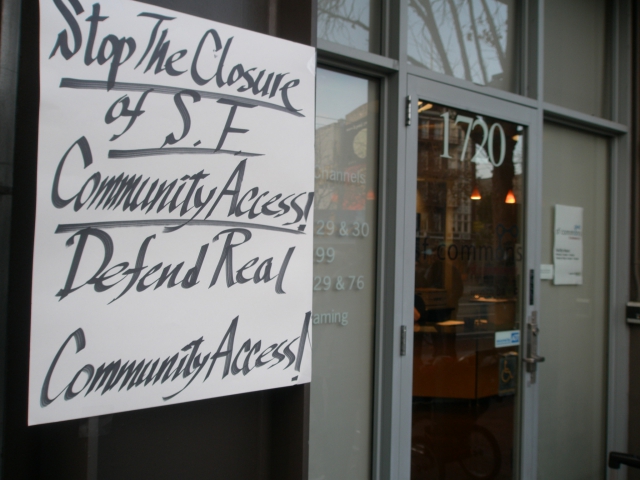 Stop The Closure
of S.F.
Community Access!
Defend Real
Community Access!
Channels
29 & 30
99
29 & 76
1720
sf commons